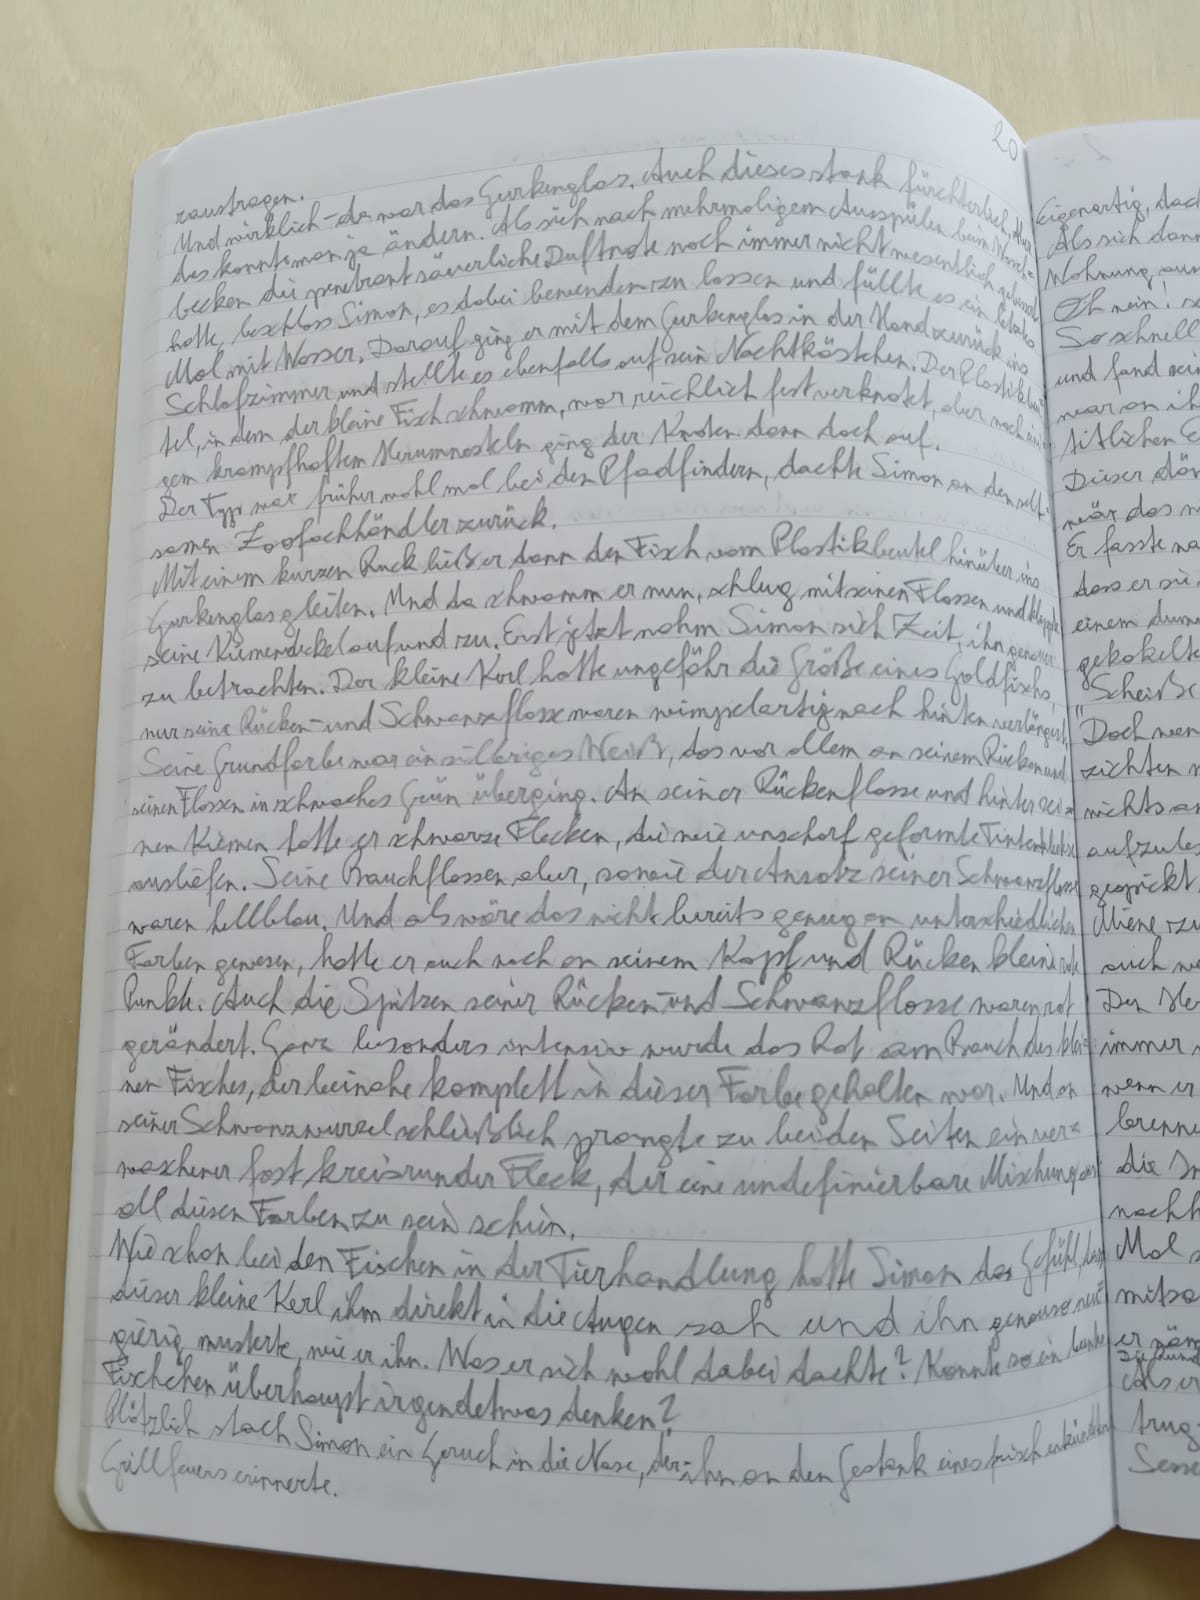 20
raustragen.
Und wirklich – da war das Gurkenglas. Auch dieses stank fürchterlich, aber
das konnte man ja ändern. Als sich nach mehrmaligem Ausspülen beim Wasch=
becken die penetrant säuerliche Duftnote noch immer nicht wesentlich gebessert
hatte, beschloss Simon, es dabei bewenden zu lassen und füllte es ein letztes
Mal mit Wasser. Darauf ging er mit dem Gurkenglas in der Hand zurück ins
Schlafzimmer und stellte es ebenfalls auf sein Nachtkästchen. Der Plastikbeu=
tel, in dem der kleine Fisch schwamm, war reichlich fest verknotet, aber nach eini=
gem krampfhaftem Herumnesteln ging der Knoten dann doch auf.
Der Typ war früher wohl mal bei den Pfadfindern, dachte Simon an den selt=
samen Zoofachhändler zurück.
Mit einem kurzen Ruck ließ er dann den Fisch vom Plastikbeutel hinüber ins
Gurkenglas gleiten. Und da schwamm er nun, schlug mit seinen Flossen und klappte
seine Kiemendeckel auf und zu. Erst jetzt nahm Simon sich Zeit, ihn genauer
zu betrachten. Der kleine Kerl hatte ungefähr die Größe eines Goldfischs,
nur seine Rücken- und Schwanzflosse waren wimpelartig nach hinten verlängert.
Seine Grundfarbe war ein silbriges Weiß, das vor allem an seinem Rücken und
seinen Flossen in schwaches Grün überging. An seiner Rückenflosse und hinter sei=
nen Kiemen hatte er schwarze Flecken, die wie unscharf geformte Tintenkleckse
ausliefen. Seine Bauchflossen aber, sowie der Ansatz seiner Schwanzflosse
waren hellblau. Und als wäre das nicht bereits genug an unterschiedlichen
Farben gewesen, hatte er auch noch an seinem Kopf und Rücken kleine rote
Punkte. Auch die Spitzen seiner Rücken- und Schwanzflosse waren rot
gerändert. Ganz besonders intensiv wurde das Rot am Bauch des klei=
nen Fisches, der beinahe komplett in dieser Farbe gehalten war. Und an
seiner Schwanzwurzel schließlich prangte zu beiden Seiten ein ver=
waschener fast kreisrunder Fleck, der eine undefinierbare Mischung aus
all diesen Farben zu sein schien.
Wie schon bei den Fischen in der Tierhandlung hatte Simon das Gefühl, dass
dieser kleine Kerl ihm direkt in die Augen sah und ihn genauso neu=
gierig musterte, wie er ihn. Was er sich wohl dabei dachte? Konnte so ein
Fischchen überhaupt irgendetwas denken?
Plötzlich stach Simon ein Geruch in die Nase, der ihn an den Gestank eines frisch
Grillfeuers erinnerte.
Eigenartig,
Als sich dann
Wohnung
Oh nein!
So schnell
und fand
war an
Dieser
wär das
Er fasste
dass er sie
einem
gekokelte
"Scheiße
Doch wen
zichten
nichts
aufzules
gespickt.
Miene zu
auch
Der
immer
wenn er
brenne
die
nachh
Mal
mitsa
er
Als er
trug
Sesse